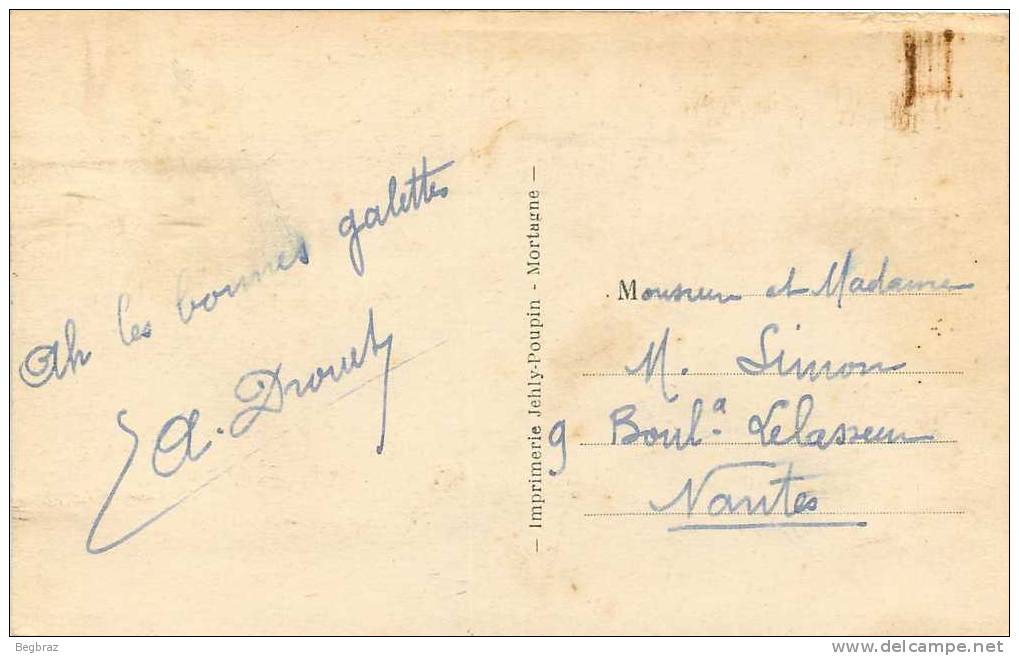 Ah les bonnes galettes
A. Drouet
— Imprimerie Jehly-Poupin - Mortagne —
Monsieur et Madame
M. Simon
9 Boul.ᵈ Lelasseur
Nantes
Begbraz
www.delcampe.net